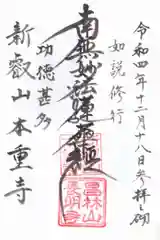 令和四年十二月十八日参拝之砌
如説修行
南無妙法蓮華経
功徳甚多
新叡山本重寺